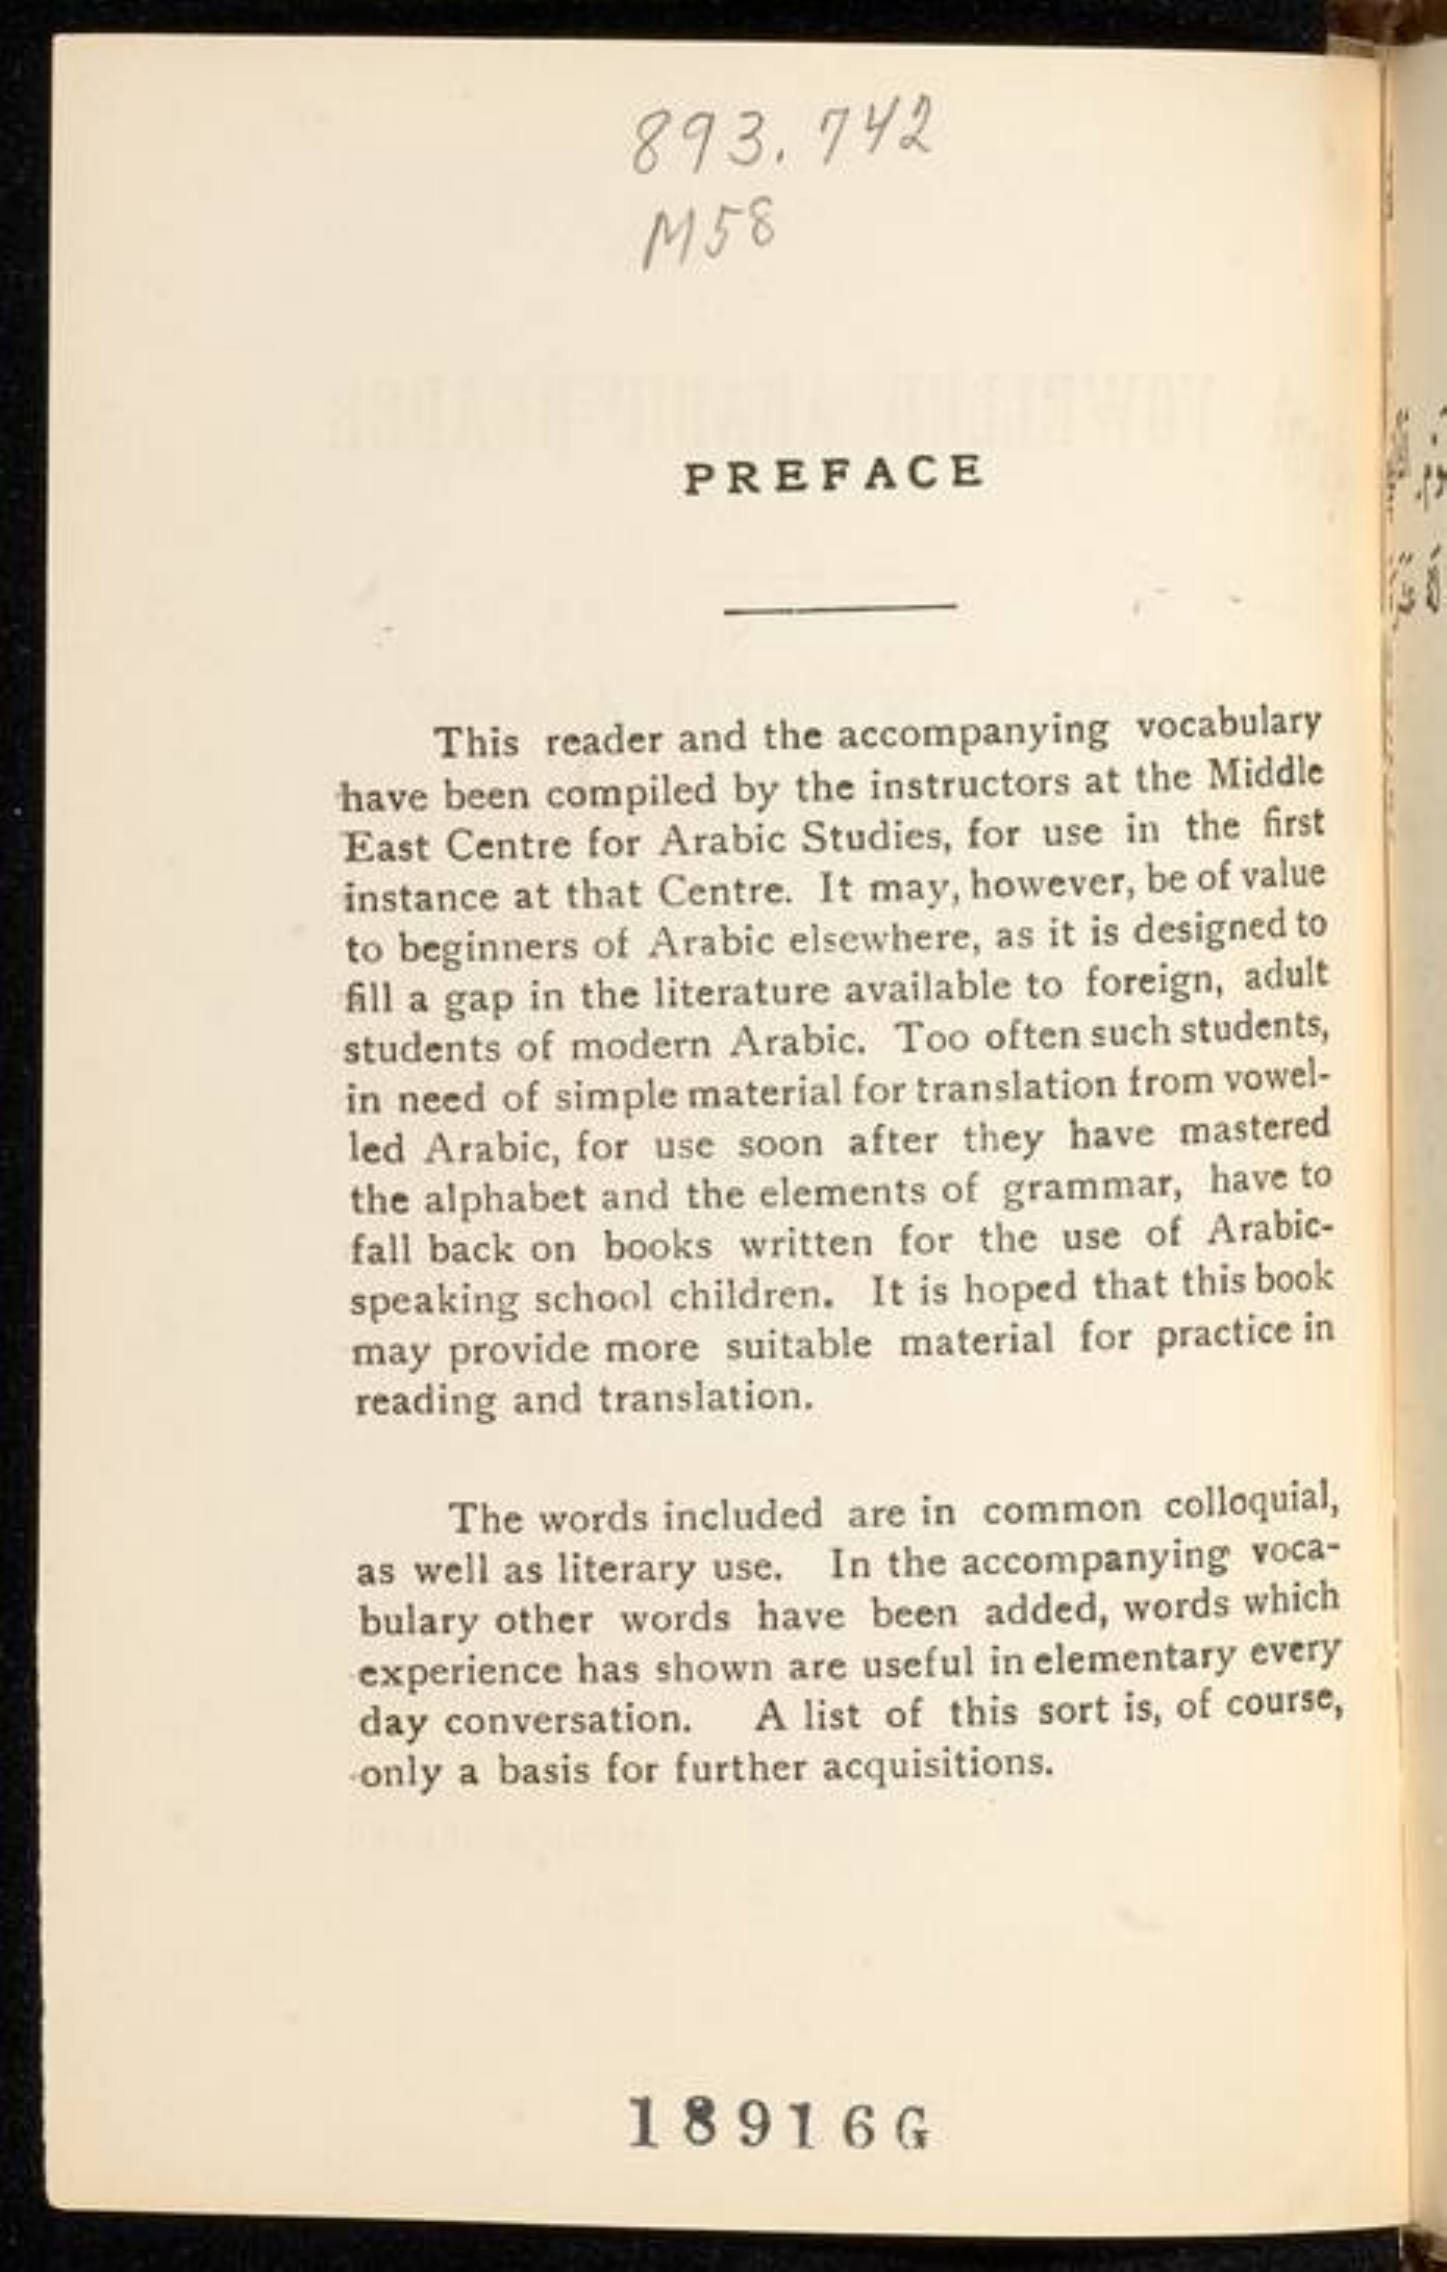 893.742
M58
PREFACE
This reader and the accompanying vocabulary
have been compiled by the instructors at the Middle
East Centre for Arabic Studies, for use in the first
instance at that Centre. It may, however, be of value
to beginners of Arabic elsewhere, as it is designed to
fill a gap in the literature available to foreign, adult
students of modern Arabic. Too often such students,
in need of simple material for translation from vowel-
led Arabic, for use soon after they have mastered
the alphabet and the elements of grammar, have to
fall back on books written for the use of Arabic-
speaking school children. It is hoped that this book
may provide more suitable material for practice in
reading and translation.
The words included are in common colloquial,
as well as literary use. In the accompanying voca-
bulary other words have been added, words which
experience has shown are useful in elementary every
day conversation. A list of this sort is, of course,
only a basis for further acquisitions.
18916G